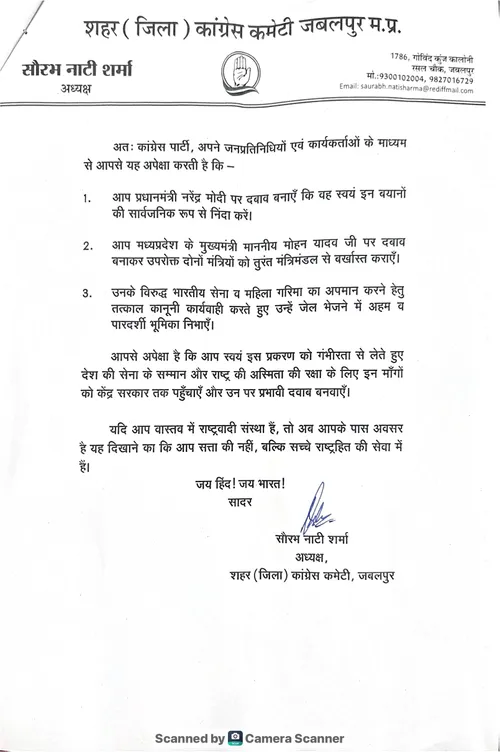 शहर ( जिला ) कांग्रेस कमेटी जबलपुर म.प्र.
सौरभ नाटी शर्मा
अध्यक्ष
1786, गोविंद कुंज कालोनी
रसल चौक, जबलपुर
मो.:9300102004, 9827016729
Email: saurabh.natisharma@rediffmail.com
अतः कांग्रेस पार्टी, अपने जनप्रतिनिधियों एवं कार्यकर्ताओं के माध्यम
से आपसे यह अपेक्षा करती है कि –
1. आप प्रधानमंत्री नरेंद्र मोदी पर दबाव बनाएँ कि वह स्वयं इन बयानों
की सार्वजनिक रूप से निंदा करें।
2. आप मध्यप्रदेश के मुख्यमंत्री माननीय मोहन यादव जी पर दबाव
बनाकर उपरोक्त दोनों मंत्रियों को तुरंत मंत्रिमंडल से बर्खास्त कराएँ।
3. उनके विरुद्ध भारतीय सेना व महिला गरिमा का अपमान करने हेतु
तत्काल कानूनी कार्यवाही करते हुए उन्हें जेल भेजने में अहम व
पारदर्शी भूमिका निभाएँ।
आपसे अपेक्षा है कि आप स्वयं इस प्रकरण को गंभीरता से लेते हुए
देश की सेना के सम्मान और राष्ट्र की अस्मिता की रक्षा के लिए इन माँगों
को केंद्र सरकार तक पहुँचाएँ और उन पर प्रभावी दवाब बनवाएँ।
यदि आप वास्तव में राष्ट्रवादी संस्था हैं, तो अब आपके पास अवसर
है यह दिखाने का कि आप सत्ता की नहीं, बल्कि सच्चे राष्ट्रहित की सेवा में
हैं।
जय हिंद! जय भारत!
सादर
सौरभ नाटी शर्मा
अध्यक्ष,
शहर (जिला) कांग्रेस कमेटी, जबलपुर
Scanned by Camera Scanner